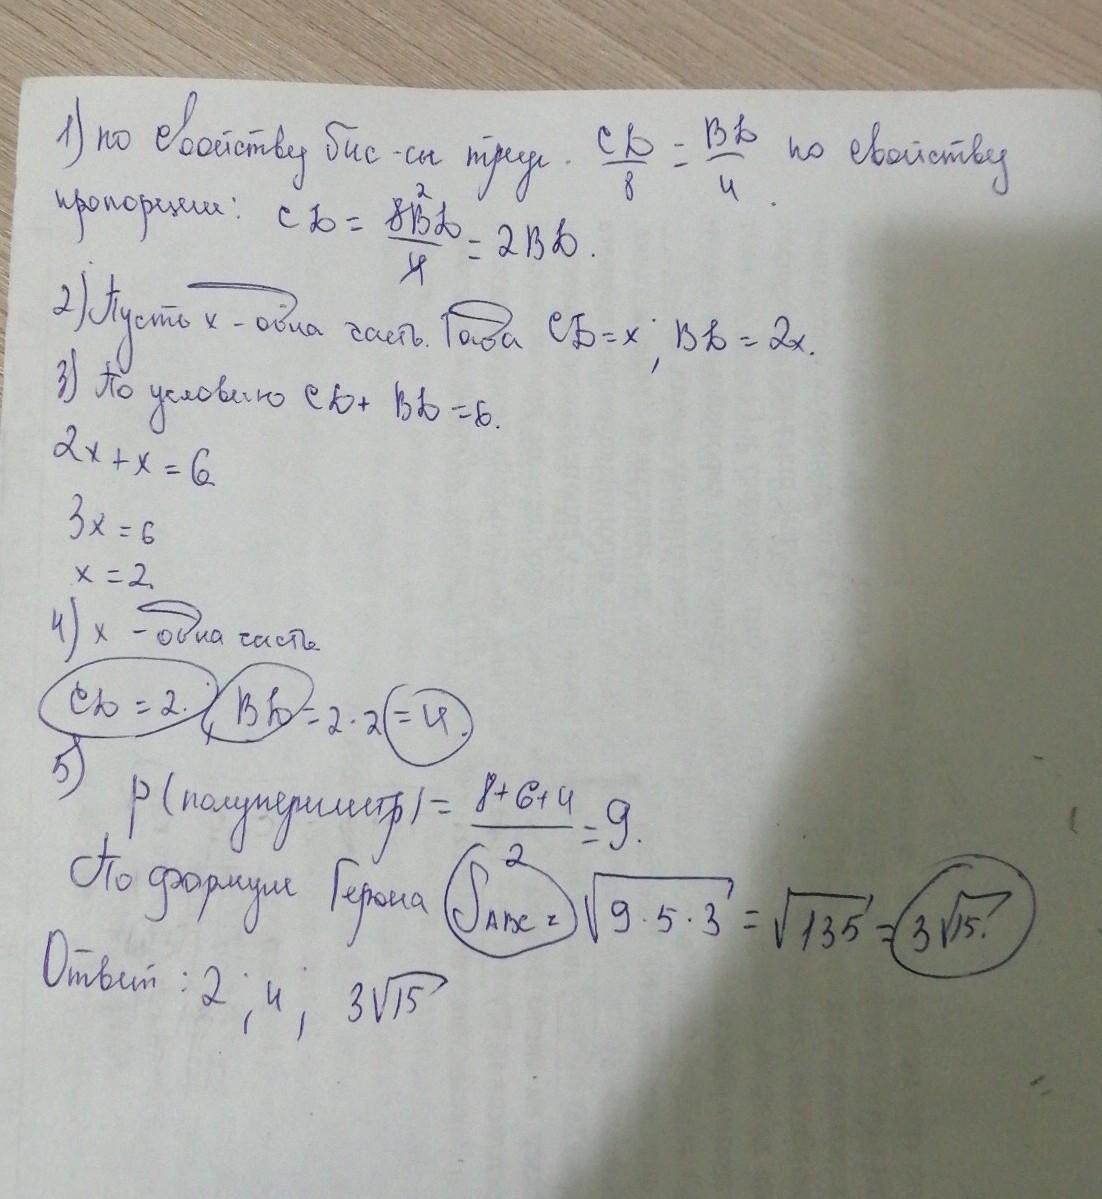 1) по свойству бис-сы треуг. CD/8 = BD/4. по свойству
пропорции: CD = 8BD/4 = 2BD.
2) Пусть x - одна часть. Тогда CD = x; BD = 2x.
3) По условию CD + BD = 6.
2x + x = 6
3x = 6
x = 2
4) x - одна часть
CD = 2. , BD = 2·2 = 4.
5)
p (полупериметр) = 8+6+4/2 = 9.
По формуле Герона S ABC = √9·5·3 = √135 = 3√15.
Ответ: 2; 4; 3√15